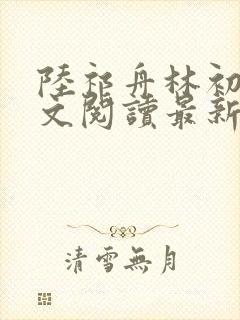 陸祁舟林初
文閱讀最新
清雪無月